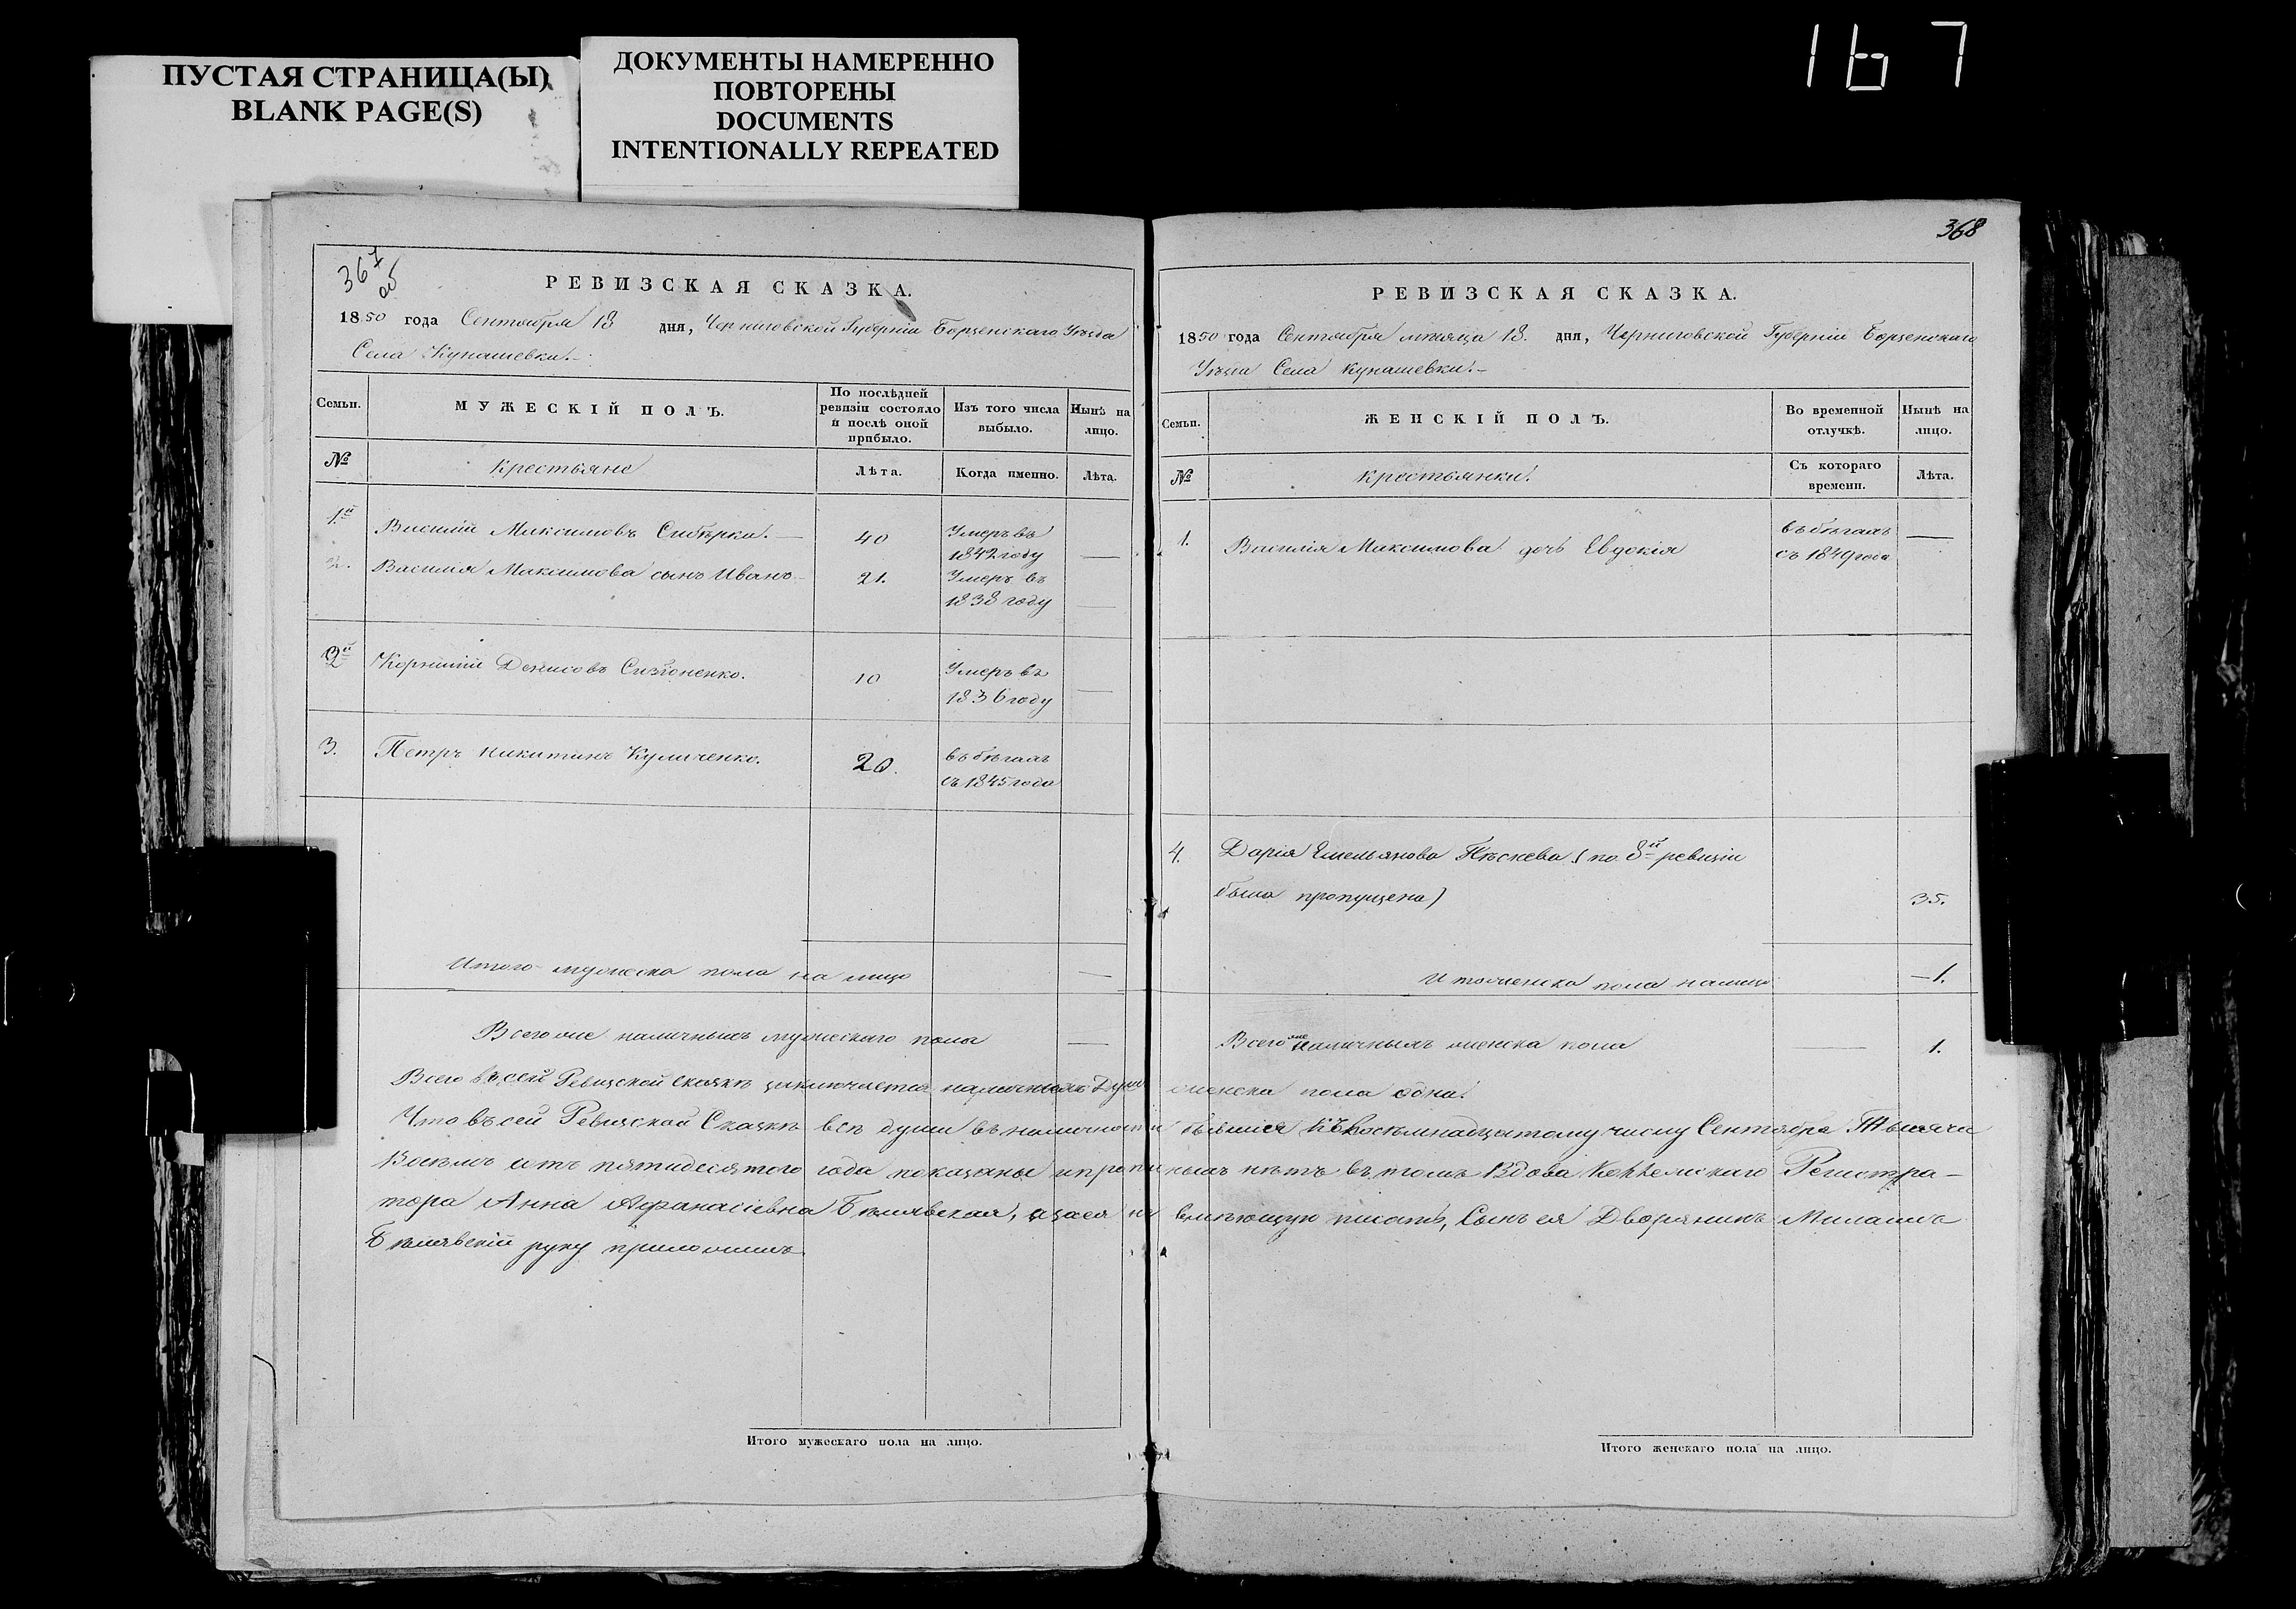 ПУСТАЯ СТРАНИЦА(Ы)
BLANK PAGE(S)
ДОКУМЕНТЫ НАМЕРЕННО
ПОВТОРЕНЫ
DOCUMENTS
INTENTIONALLY REPEATED
167
367
об
РЕВИЗСКАЯ СКАЗКА.
1850 года Сентября 18 дня, Черниговской Губерніи Борзенскаго Уѣзда
Села Кунашевки.
Семьи.
МУЖЕСКІЙ ПОЛЪ.
По послѣдней
ревизіи состояло
и послѣ оной
прибыло.
Изъ того числа
выбыло.
Нынѣ на
лицо.
№
Крестьяне
Лѣта.
Когда именно.
Лѣта.
1й
Василій Максимовъ Сибѣрка. —
40
Умеръ въ
1842 году
—
2.
Василія Максимова сынъ Иванъ
21.
Умеръ въ
1838 году
—
2й
Корнилій Денисовъ
10
Умеръ въ
1836 году
—
3.
Петръ Никитинъ Куличенко.
20.
въ бѣгахъ
съ 1845 года
Итого мужеска пола на лицо
—
Всего же наличныхъ мужескаго пола
—
368
РЕВИЗСКАЯ СКАЗКА.
1850 года Сентября мѣсяца 18. дня, Черниговской Губерніи Борзенскаго
Уѣзда Села Кунашевки.
Семьи.
ЖЕНСКІЙ ПОЛЪ.
Во временной
отлучкѣ.
Нынѣ на
лицо.
№
Крестьянки.
Съ котораго
времени.
Лѣта.
1.
Василія Максимова дочь Евдокія
въ бѣгахъ
съ 1849 года
—
4.
Дарія Емельянова (по 8й ревизіи
была пропущена)
35.
Итого женска пола на лицо
—1.
Всего же наличныхъ женска пола
—
1.
Всего въ сей Ревизской сказкѣ заключается наличныхъ Душъ женска пола одна.
Что въ сей Ревизской Сказкѣ всѣ души въ наличности бывшія къ Восемнадцатому числу Сентября Тысяча
Восемь сотъ пятидесятого года показаны и прописныхъ нѣтъ въ томъ Вдова Коллежскаго Регистра-
тора Анна Афанасіевна Бѣлявская, а за ея не умѣющую писать, Сынъ ея Дворянинъ
Бѣлявскій руку приложилъ
Итого мужескаго пола на лицо.
Итого женскаго пола на лицо.